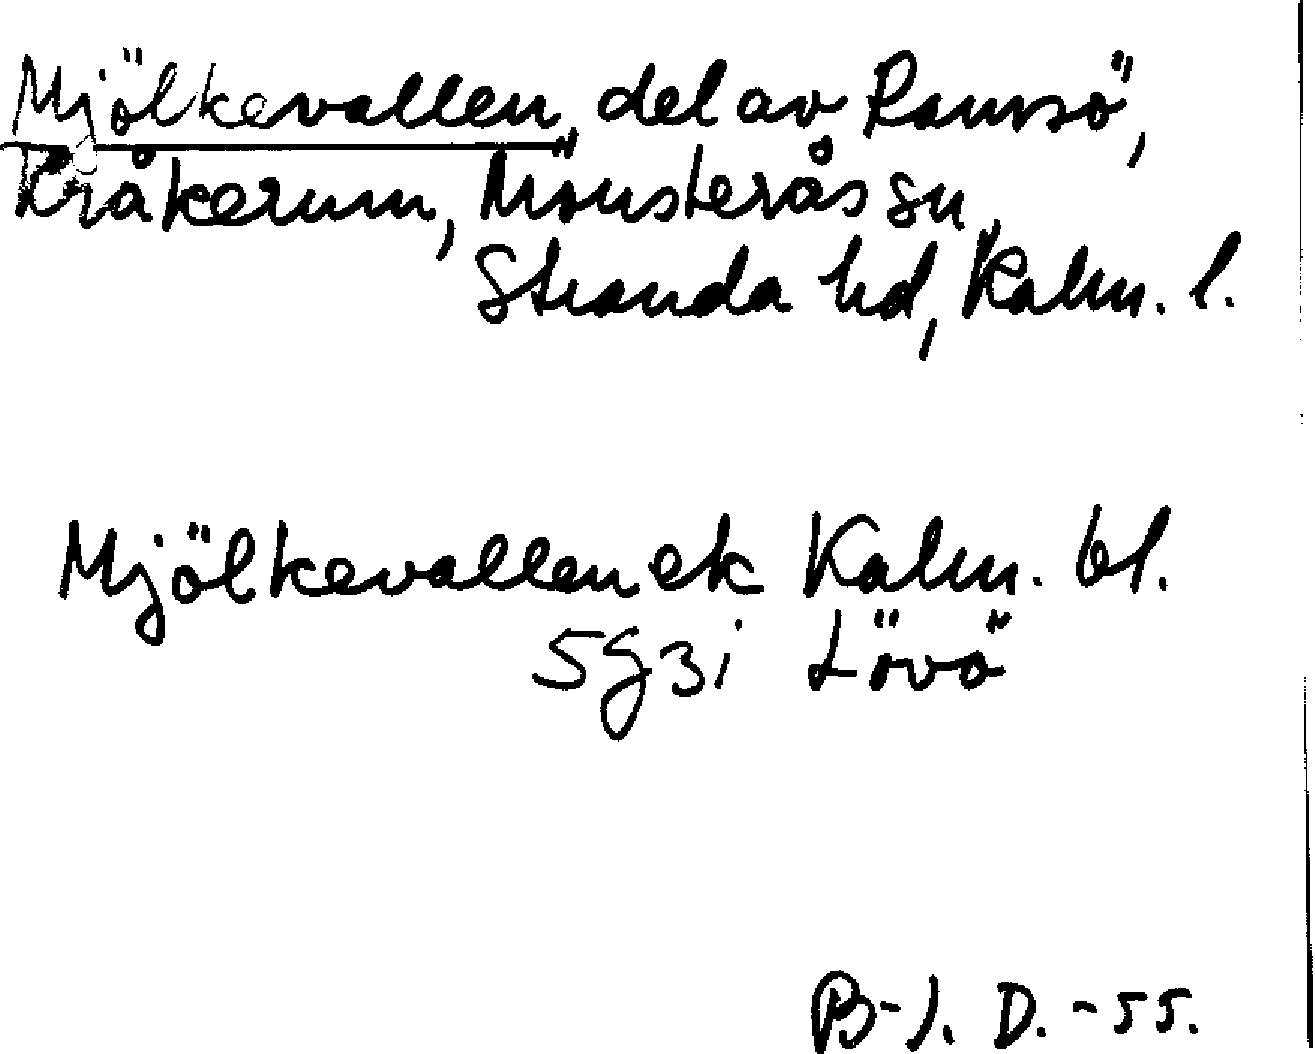 Mjölkevallen, del av Ramsö,
Kråkerum, Mönsterås sn,
Stranda hd, Kalm. l.
Mjölkevallen ek Kalm. bl.
5g3i Lövö
B-J. D. -55.